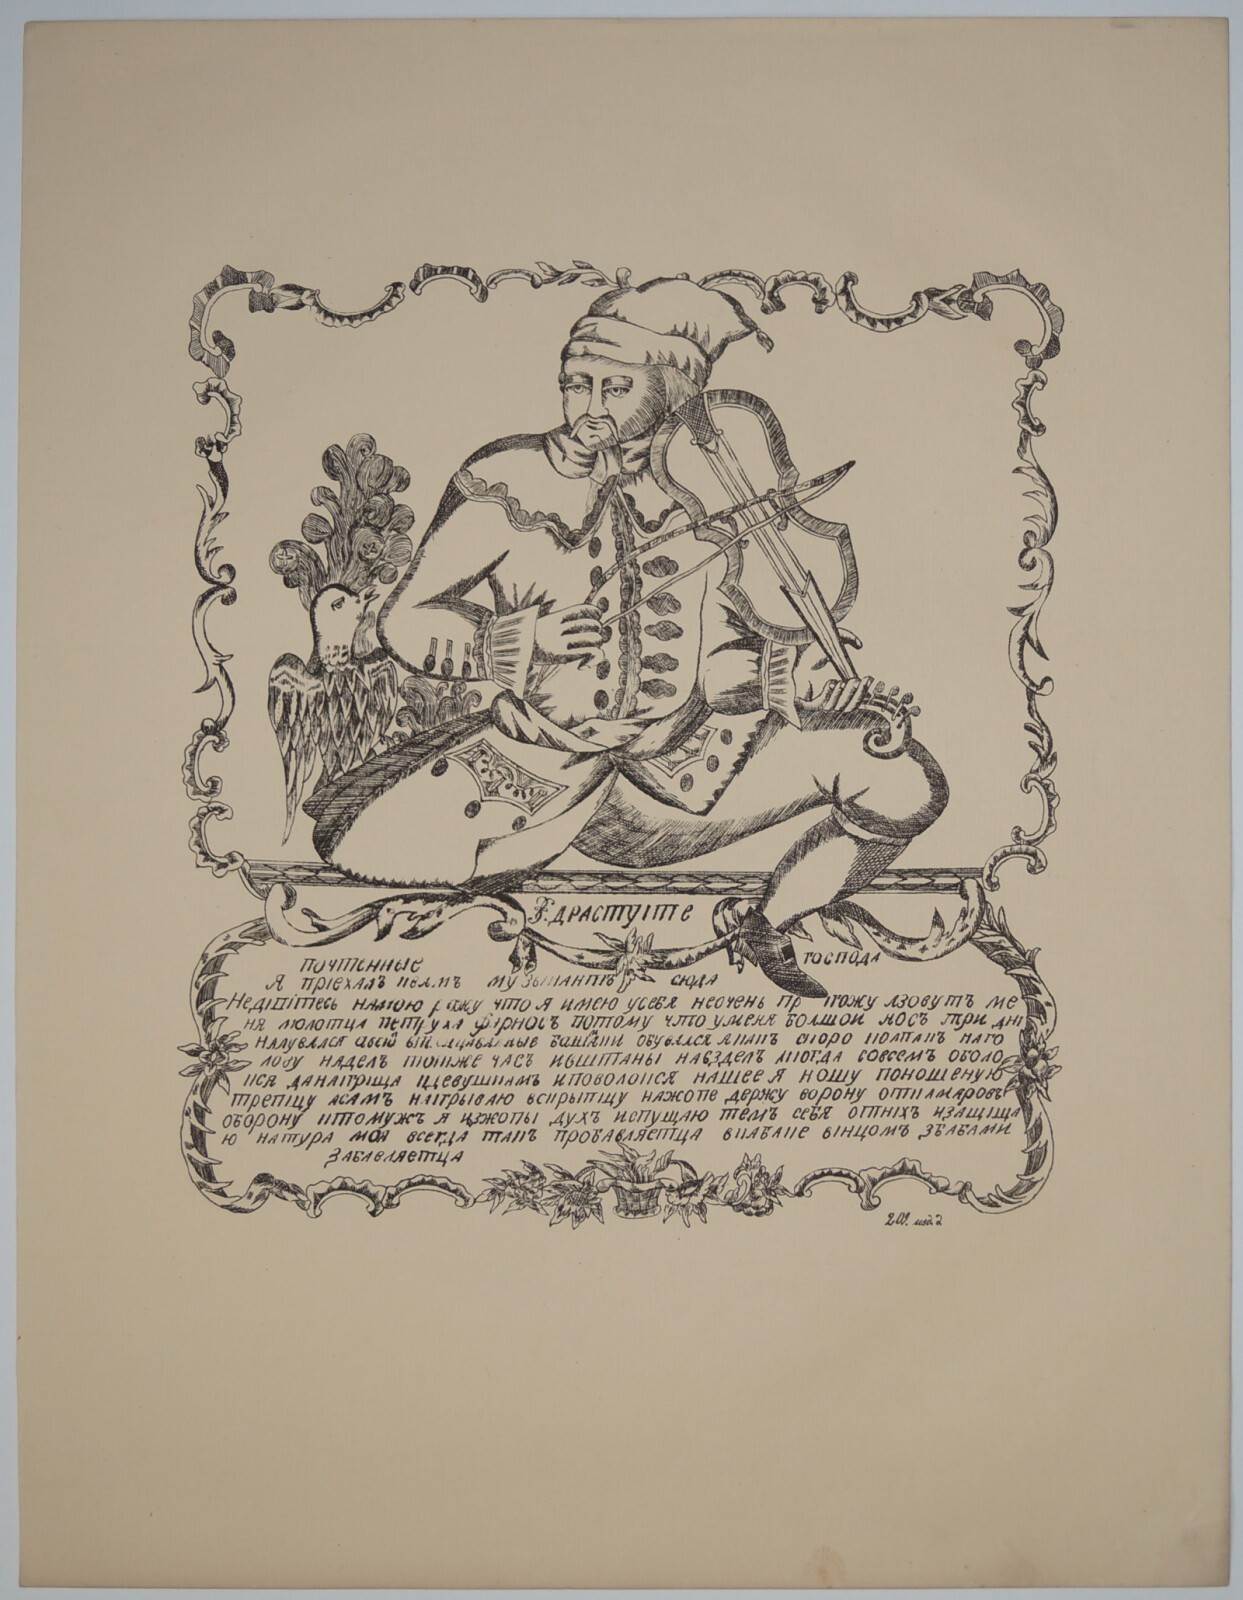 Здраствуите
почтенные господа
Я приехалъ к вамъ музыкантъ сюда
Недивитесь намою рожу что я имею усебя неочень пр игожу а зовутъ ме
ня молотца петруха фарносъ потому что уменя болшои носъ три дни
надувался обувался а какъ скоро колпакъ наго
лову наделъ тотже часъ ивштаны набздел когда совсемъ оболо
кся данаприща к девушкамъ иповолокся нашее я ношу поношеную
трепицу асамъ наигрываю вскрыпицу нажопе держу ворону откамаровъ
оборону ктомужъ я изжопы духъ испущаю темъ себя отних изащища
ю натура моя всегда такъ пробавляетца скабаке винцомъ збабами
забавляетца